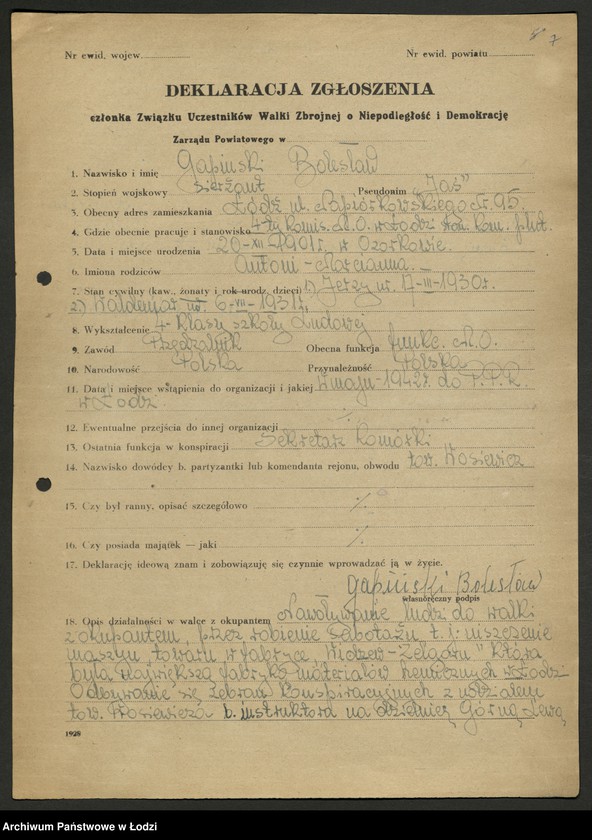 8 7
Nr ewid. wojew.
Nr ewid. powiatu
DEKLARACJA ZGŁOSZENIA
członka Związku Uczestników Walki Zbrojnej o Niepodległość i Demokrację
Zarządu Powiatowego w
1. Nazwisko i imię Gapiński Bolesław
2. Stopień wojskowy sierżant Pseudonim "Jaś"
3. Obecny adres zamieszkania Łódź ul. Napiórkowskiego Nr. 95.
4. Gdzie obecnie pracuje i stanowisko 4-ty Komis. M.O. w Łodzi kom.
5. Data i miejsce urodzenia 20-XII-1901r. w Ozorkowie.
6. Imiona rodziców Antoni - Marcianna.
7. Stan cywilny (kaw., żonaty i rok urodz. dzieci) 1) Jerzy ur. 17-III-1930r.
2) Waldemar ur. 6-VII-1931r.
8. Wykształcenie 4-klasy szkoły Ludowej
9. Zawód Przędzalnik Obecna funkcja funkc. M.O.
10. Narodowość Polska Przynależność Polska
11. Data i miejsce wstąpienia do organizacji i jakiej w maju-1942r. do P.P.R.
w Łodzi.
12. Ewentualne przejścia do innej organizacji ·/.
13. Ostatnia funkcja w konspiracji Sekretarz Komórki
14. Nazwisko dowódcy b. partyzantki lub komendanta rejonu, obwodu tow. Wosiewicz
15. Czy był ranny, opisać szczegółowo ·/.
16. Czy posiada majątek — jaki ·/.
17. Deklarację ideową znam i zobowiązuję się czynnie wprowadzać ją w życie.
Gapiński Bolesław
własnoręczny podpis
18. Opis działalności w walce z okupantem Nawoływanie ludzi do walki
z okupantem, przez robienie sabotażu, t.j: niszczenie
maszyn, towaru w fabryce, "Widzew-Żelazny" która
była największą fabryką materiałów chemicznych w Łodzi
Odbywanie się zebrań konspiracyjnych z udziałem
tow. Wosiewicza b. instruktora na dzielnicę Górną-Lewą
1928
Archiwum Państwowe w Łodzi